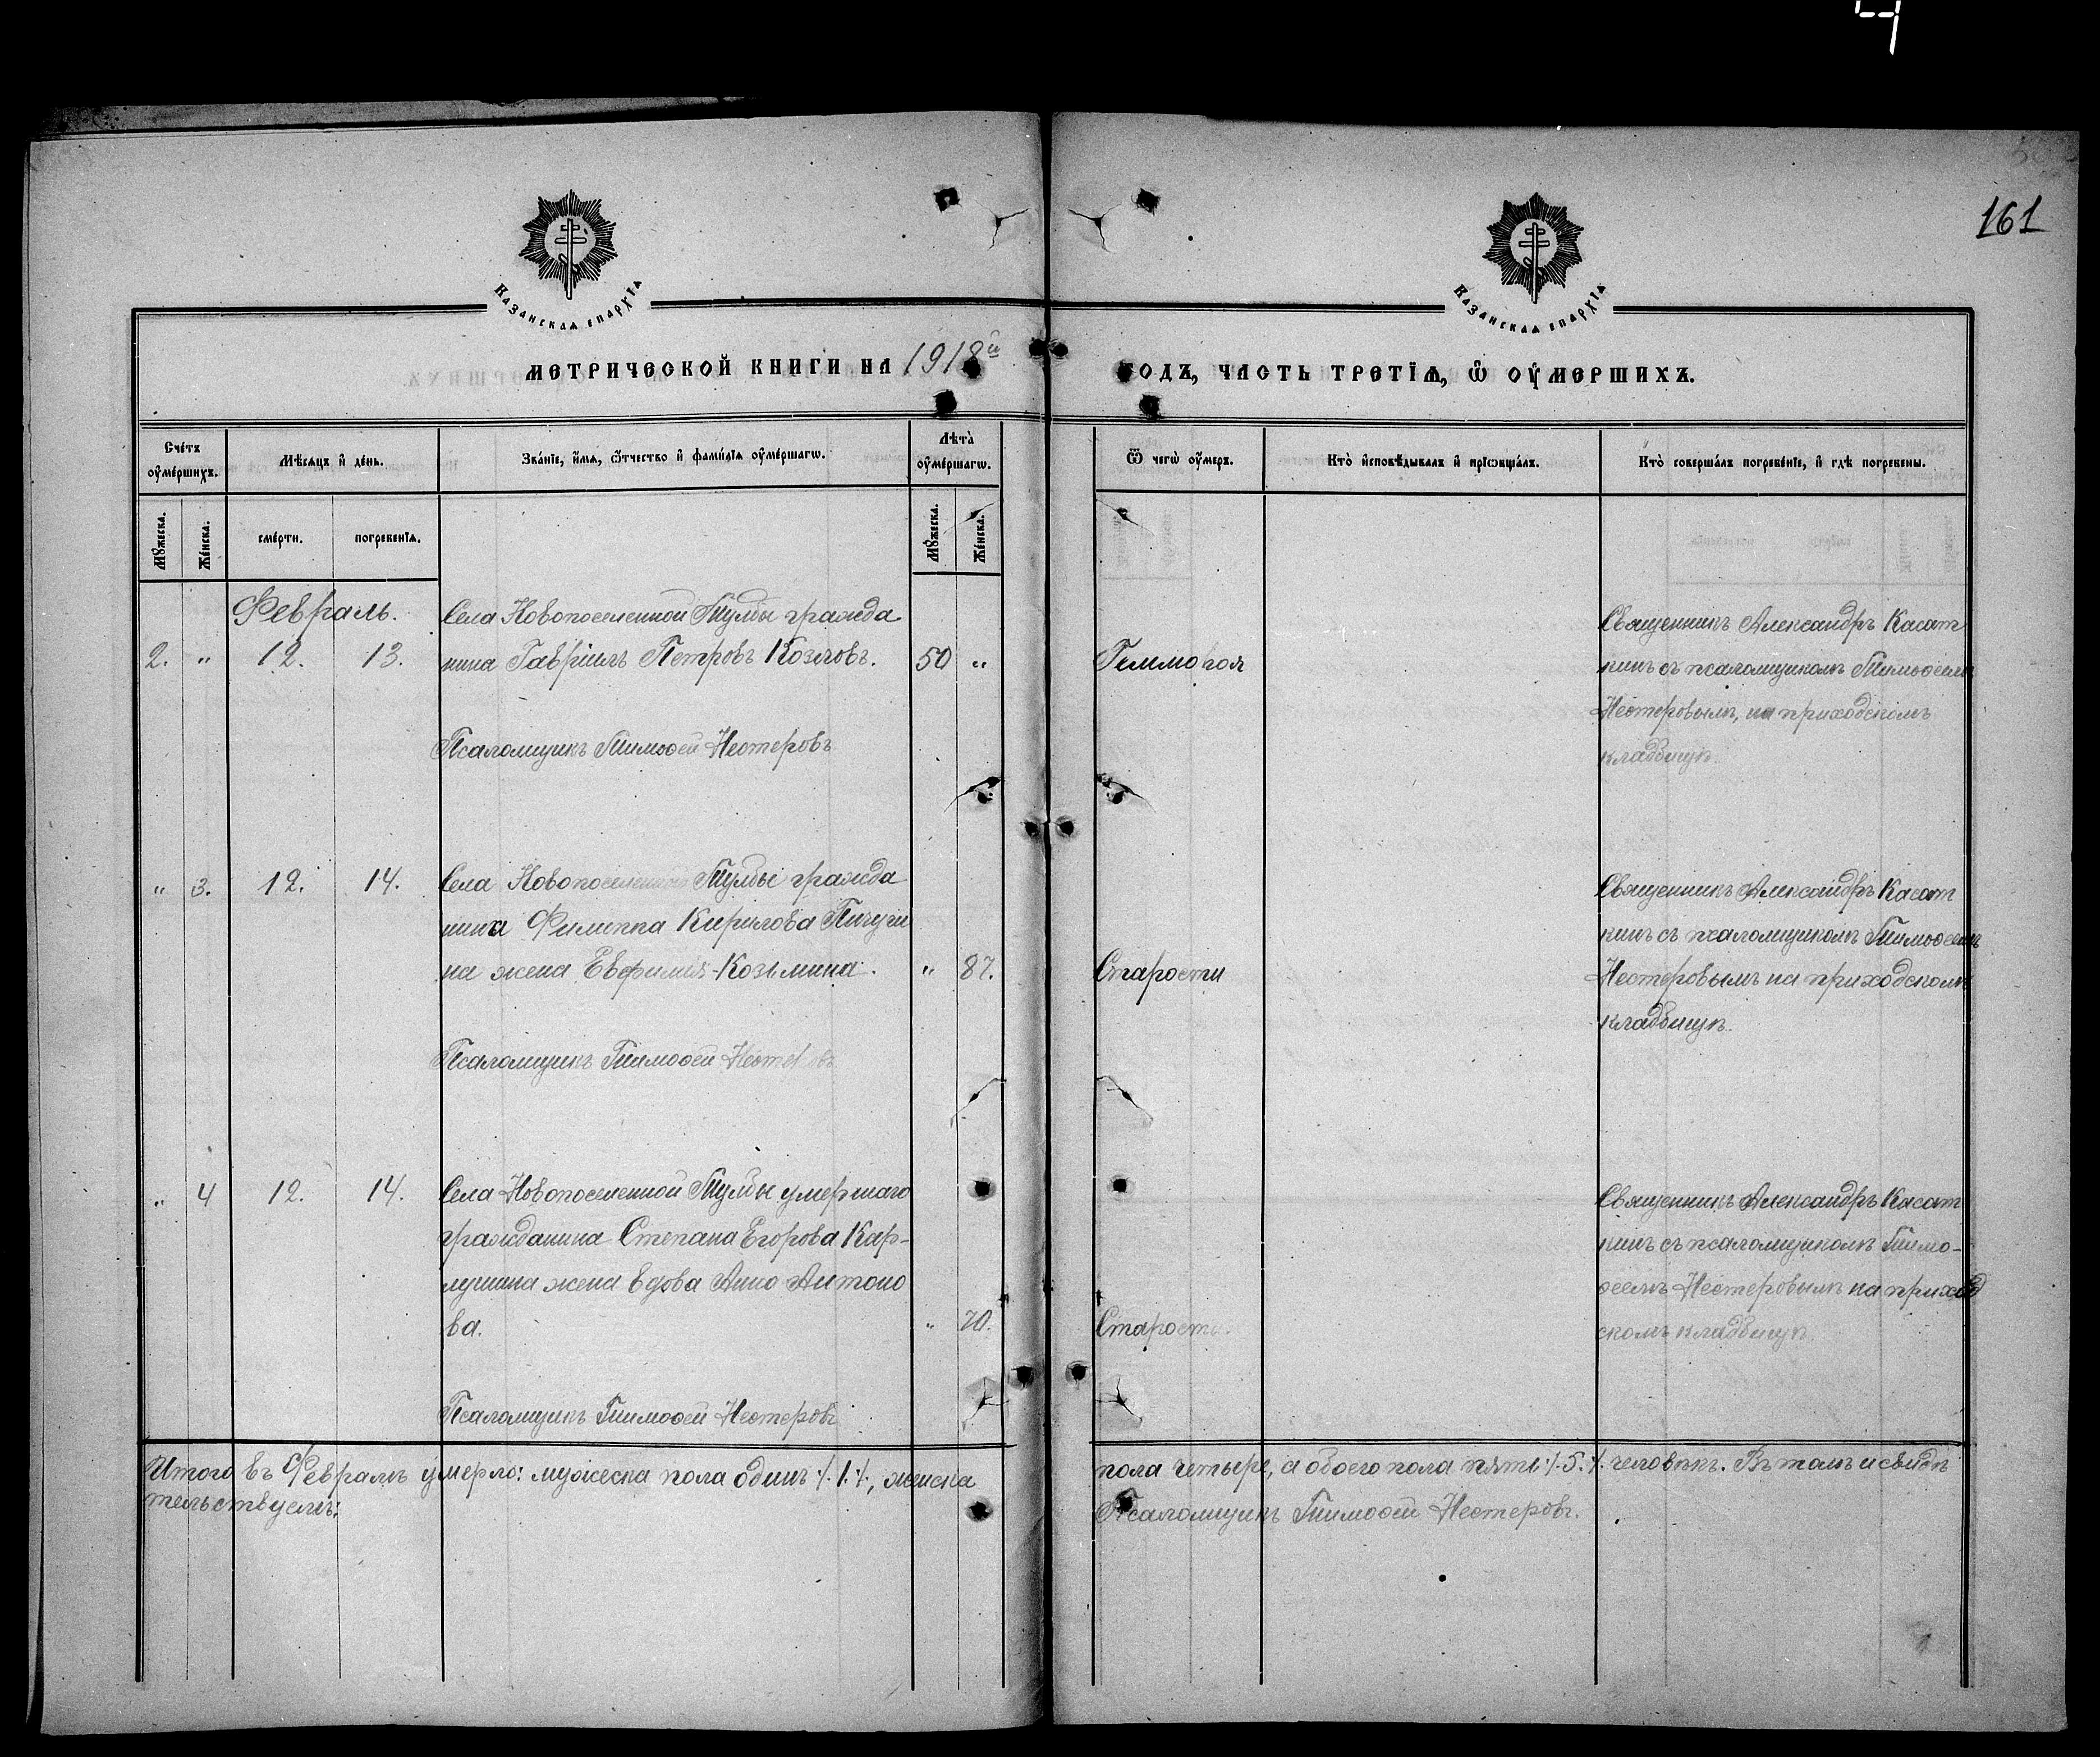 4
161
Казанская епархїѧ
Казанская епархїѧ
МЕТРИЧЕСКОЙ КНИГИ НА 1918й
ГОДЪ, ЧАСТЬ ТРЕТЇѦ, Ѿ ОУМЕРШИХЪ.
Счéтъ оумéршихъ.
Мѣсяцъ и день.
Звáнїе, и́мѧ, ѻ́тчество и҆ фами́лїѧ оумéршагѡ.
Лѣта̀ оумéршагѡ.
Ѿ чегѡ̀ оумеръ.
Кто̀ и҆сповѣ́дывалъ и҆ прїѡбщáлъ.
Кто̀ совершáлъ погребéнїе, и҆ гдѣ̀ погребены.
Мꙋжеска.
Жéнска.
смéрти.
погребенїѧ.
Мꙋжеска.
Жéнска.
Февраль.
Села Новопоселенной Тумбы гражда
2. " 12. 13. нина Гавріилъ Петровъ Козловъ. 50 "
Псаломщикъ Тимоѳей Нестеровъ
Священникъ Александръ Касат
кинъ съ псаломщикомъ Тимоѳеемъ
Нестеровымъ, на приходскомъ
кладбищѣ.
" 3. 12. 14. Села Новопоселенной Тумбы гражда
нина Филиппа Кирилова Пичуги
на жена Евфимія Козьмина. " 87. Старости
Псаломщикъ Тимоѳей Нестеровъ
Священникъ Александръ Касат
кинъ съ псаломщикомъ Тимоѳеемъ
Нестеровымъ на приходскомъ
кладбищѣ.
" 4 12. 14. Села Новопоселенной Тумбы умершаго
гражданина Степана Егорова Кар-
мушина жена вдова Анна Антоно
ва. " 70. Старости.
Псаломщикъ Тимоѳей Нестеровъ
Священникъ Александръ Касат
кинъ съ псаломщикомъ Тимо-
ѳеемъ Нестеровымъ на приход
скомъ кладбищѣ.
Итого въ Февралѣ умерло: мужеска пола одинъ ·/. 1 ·/., женска
пола четыре, а обоего пола пять ·/. 5. ·/. человѣкъ. Въ томъ и свидѣ
тельствуемъ:
Псаломщикъ Тимоѳей Нестеровъ.